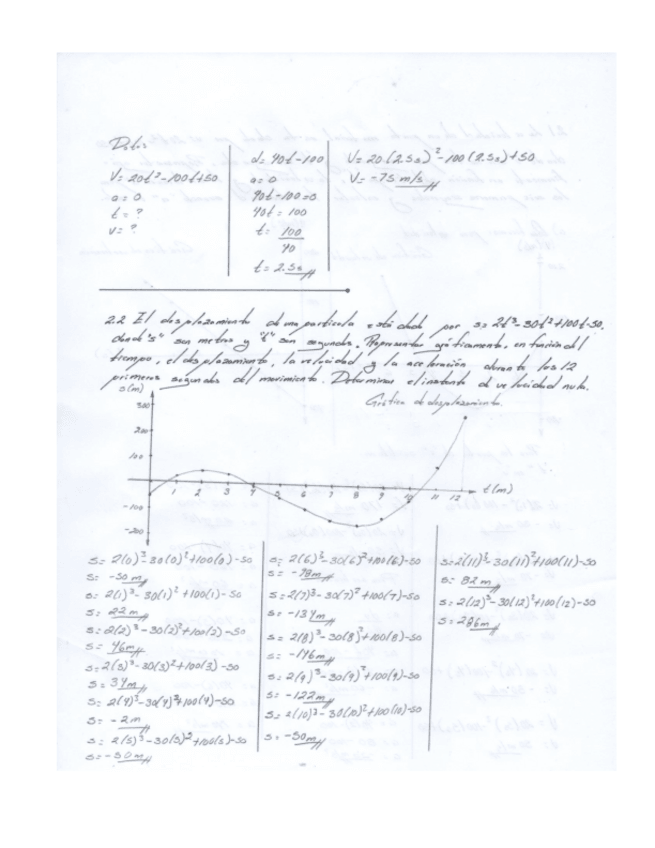 Datos
V= 20t²-100t+50
a= 0
t= ?
v= ?
d= 40t-100
a= 0
40t-100=0
40t= 100
t= 100
40
t= 2.5s
V= 20(2.5s)²-100(2.5s)+50
V= -75 m/s
2.2 El desplazamiento de una partícula está dado por s= 2t³-30t²+100t-50,
donde "s" son metros y "t" son segundos. Representar gráficamente, en función del
tiempo, el desplazamiento, la velocidad y la aceleración durante los 12
primeros segundos del movimiento. Determinar el instante de velocidad nula.
s(m)
Gráfica de desplazamiento.
300
200
100
-100
-200
1 2 3 4 5 6 7 8 9 10 11 12 t(m)
s= 2(0)³-30(0)²+100(0)-50
s= -50m
s= 2(1)³-30(1)²+100(1)-50
s= 22m
s= 2(2)³-30(2)²+100(2)-50
s= 46m
s= 2(3)³-30(3)²+100(3)-50
s= 34m
s= 2(4)³-30(4)²+100(4)-50
s= -2m
s= 2(5)³-30(5)²+100(5)-50
s= -50m
s= 2(6)³-30(6)²+100(6)-50
s= -98m
s= 2(7)³-30(7)²+100(7)-50
s= -134m
s= 2(8)³-30(8)²+100(8)-50
s= -146m
s= 2(9)³-30(9)²+100(9)-50
s= -122m
s= 2(10)³-30(10)²+100(10)-50
s= -50m
s= 2(11)³-30(11)²+100(11)-50
s= 82m
s= 2(12)³-30(12)²+100(12)-50
s= 286m